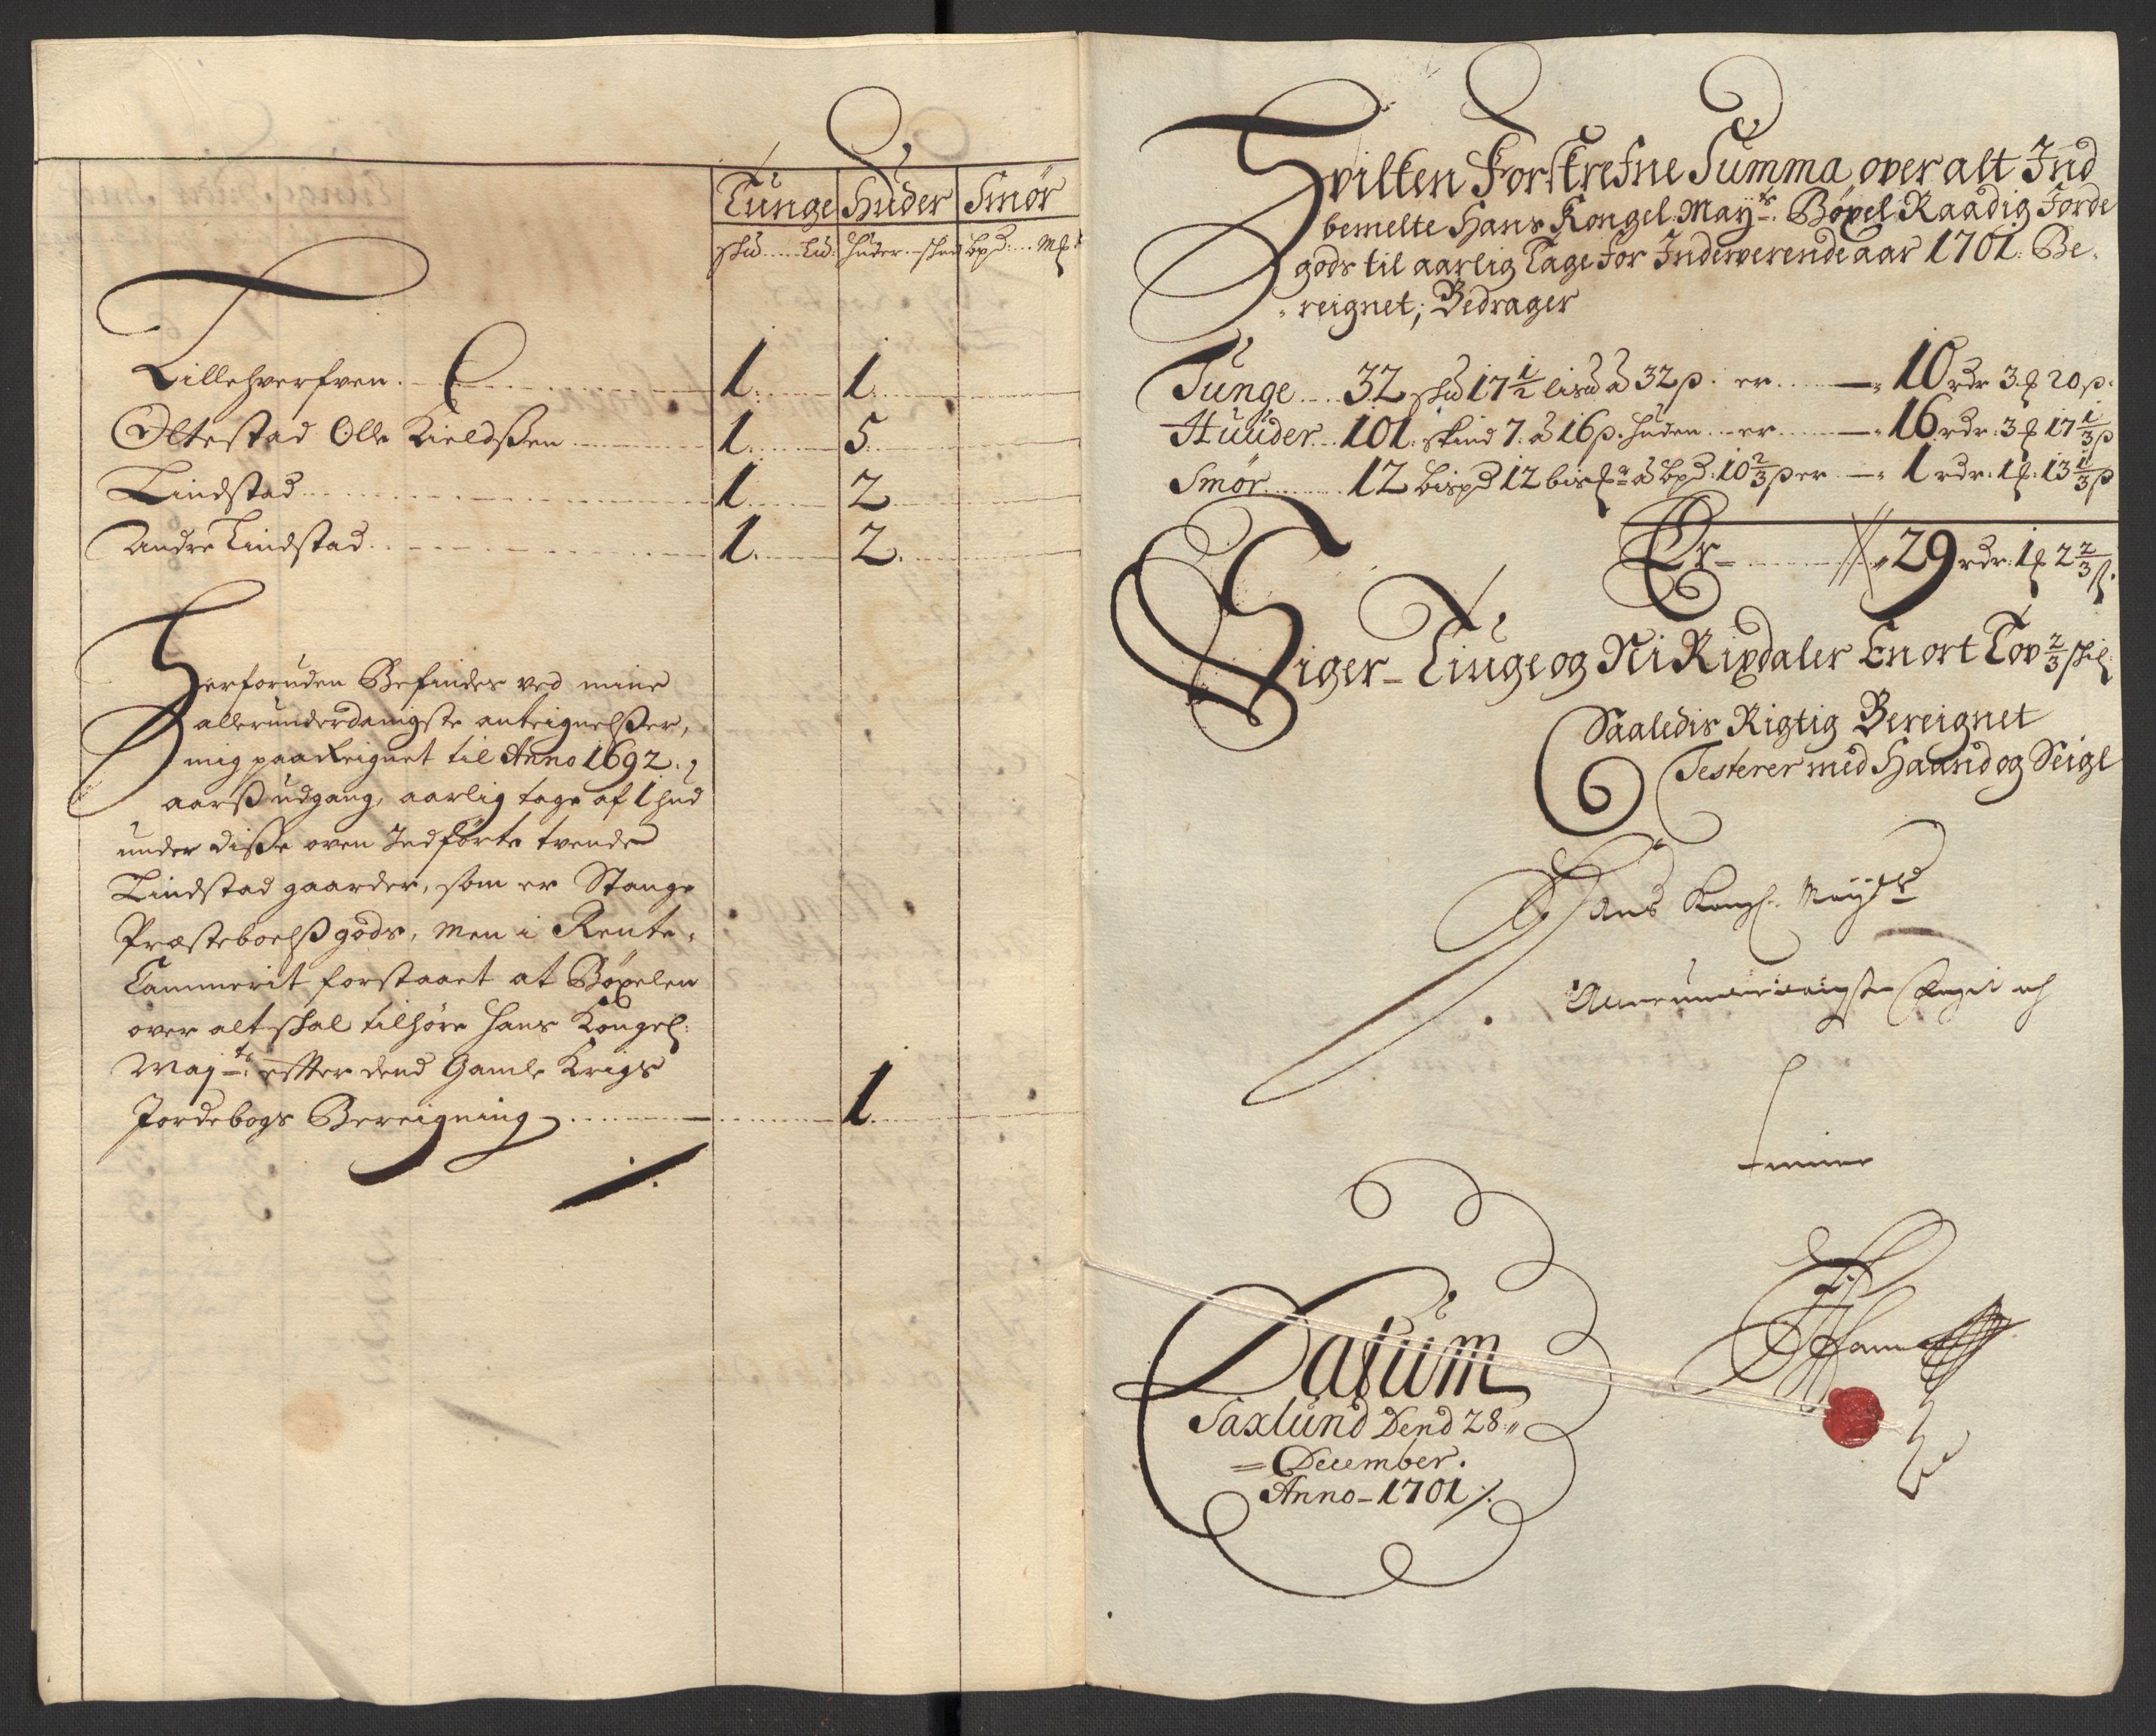 Tunge Huder Smör
skd lid: huder skind bpd Mk
Lillehverfven 1 1
Oltestad Olle Kieldssen 1 5
Lindstad 1 2
Andre Lindstad 1 2
Herforuden Befindes ved mine
allerunderdanigste anteignelsser,
mig paareignet til Anno 1692.
aarss udgang, aarlig tage af 1 hud
under disse oven Indførte tvende
Lindstad gaarder, som er Stange
Præsteboelss gods, men i Rente-
Cammerit forstaaet at Böxelen
over alt skal tilhöre Hans Kongel:
May.ts: effter dend Gamle Krigs
Jordebogs Bereigning 1
Hvilken Forskrefne Summa over alt Ind
bemelte Hans Kongel: May.ts: Böxel Raadig Jorde
gods til aarlig Tage for Indeverende aar 1701. Be-
reignet; Bedrager
Tunge 32 skd 17 1/2 lisd à 32 β. er 10 rdr 3 ꝭ 20 β.
Huuder 101. skind 7. à 16 β. huden er 16 rdr. 3 ꝭ 17 1/3 β
Smör 12 bispd 12 bismr à bpd. 10 2/3 β er 1 rdr. 1 ꝭ. 13 1/3 β
Er 29 rdr. 1 ꝭ 2 2/3 β.
Siger Tiuge og Ni Rixdaler En ort Tov 2/3 skil
Saaledis Rigtig Bereignet
Testerer med Haand og Seigl
Hans Kongl. Mayts
Allerunderdanigste
Datum
Saxlund Dend 28
December.
Anno 1701